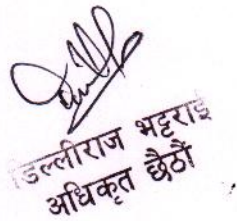 डिल्लीराज भट्टराई
अधिकृत छैठौं